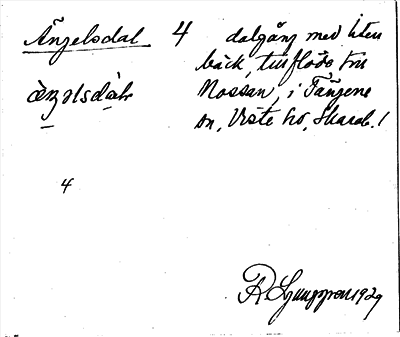 Ängelsdal 4 dalgång med liten
bäck, tillflöde till
Nossan, i Fängene
sn, Viste hd, Skarab. l
4
R Ljunggren 1929